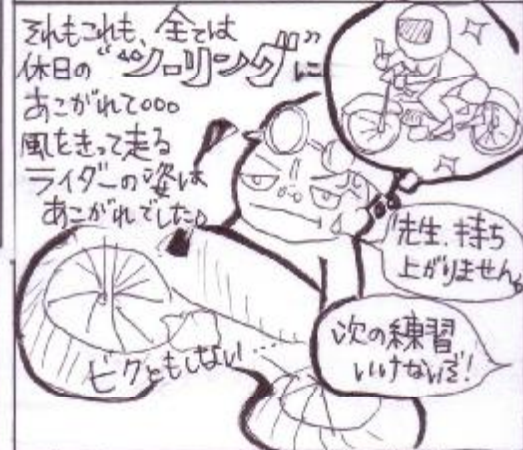 それもこれも、全ては
休日の“ツーリング”に
あこがれて。。。
風をきって走る
ライダーの姿は
あこがれでした。
先生、持ち
上がりません。
次の練習
いけないぞ!
ビクともしない…